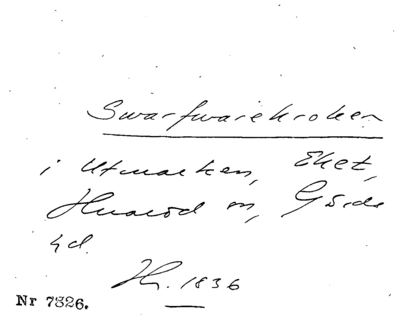 Swarfwarekroken
i Utmarken, Eket,
Huaröd sn, Gärds
hd.
Hr. 1836
Nr 7326.